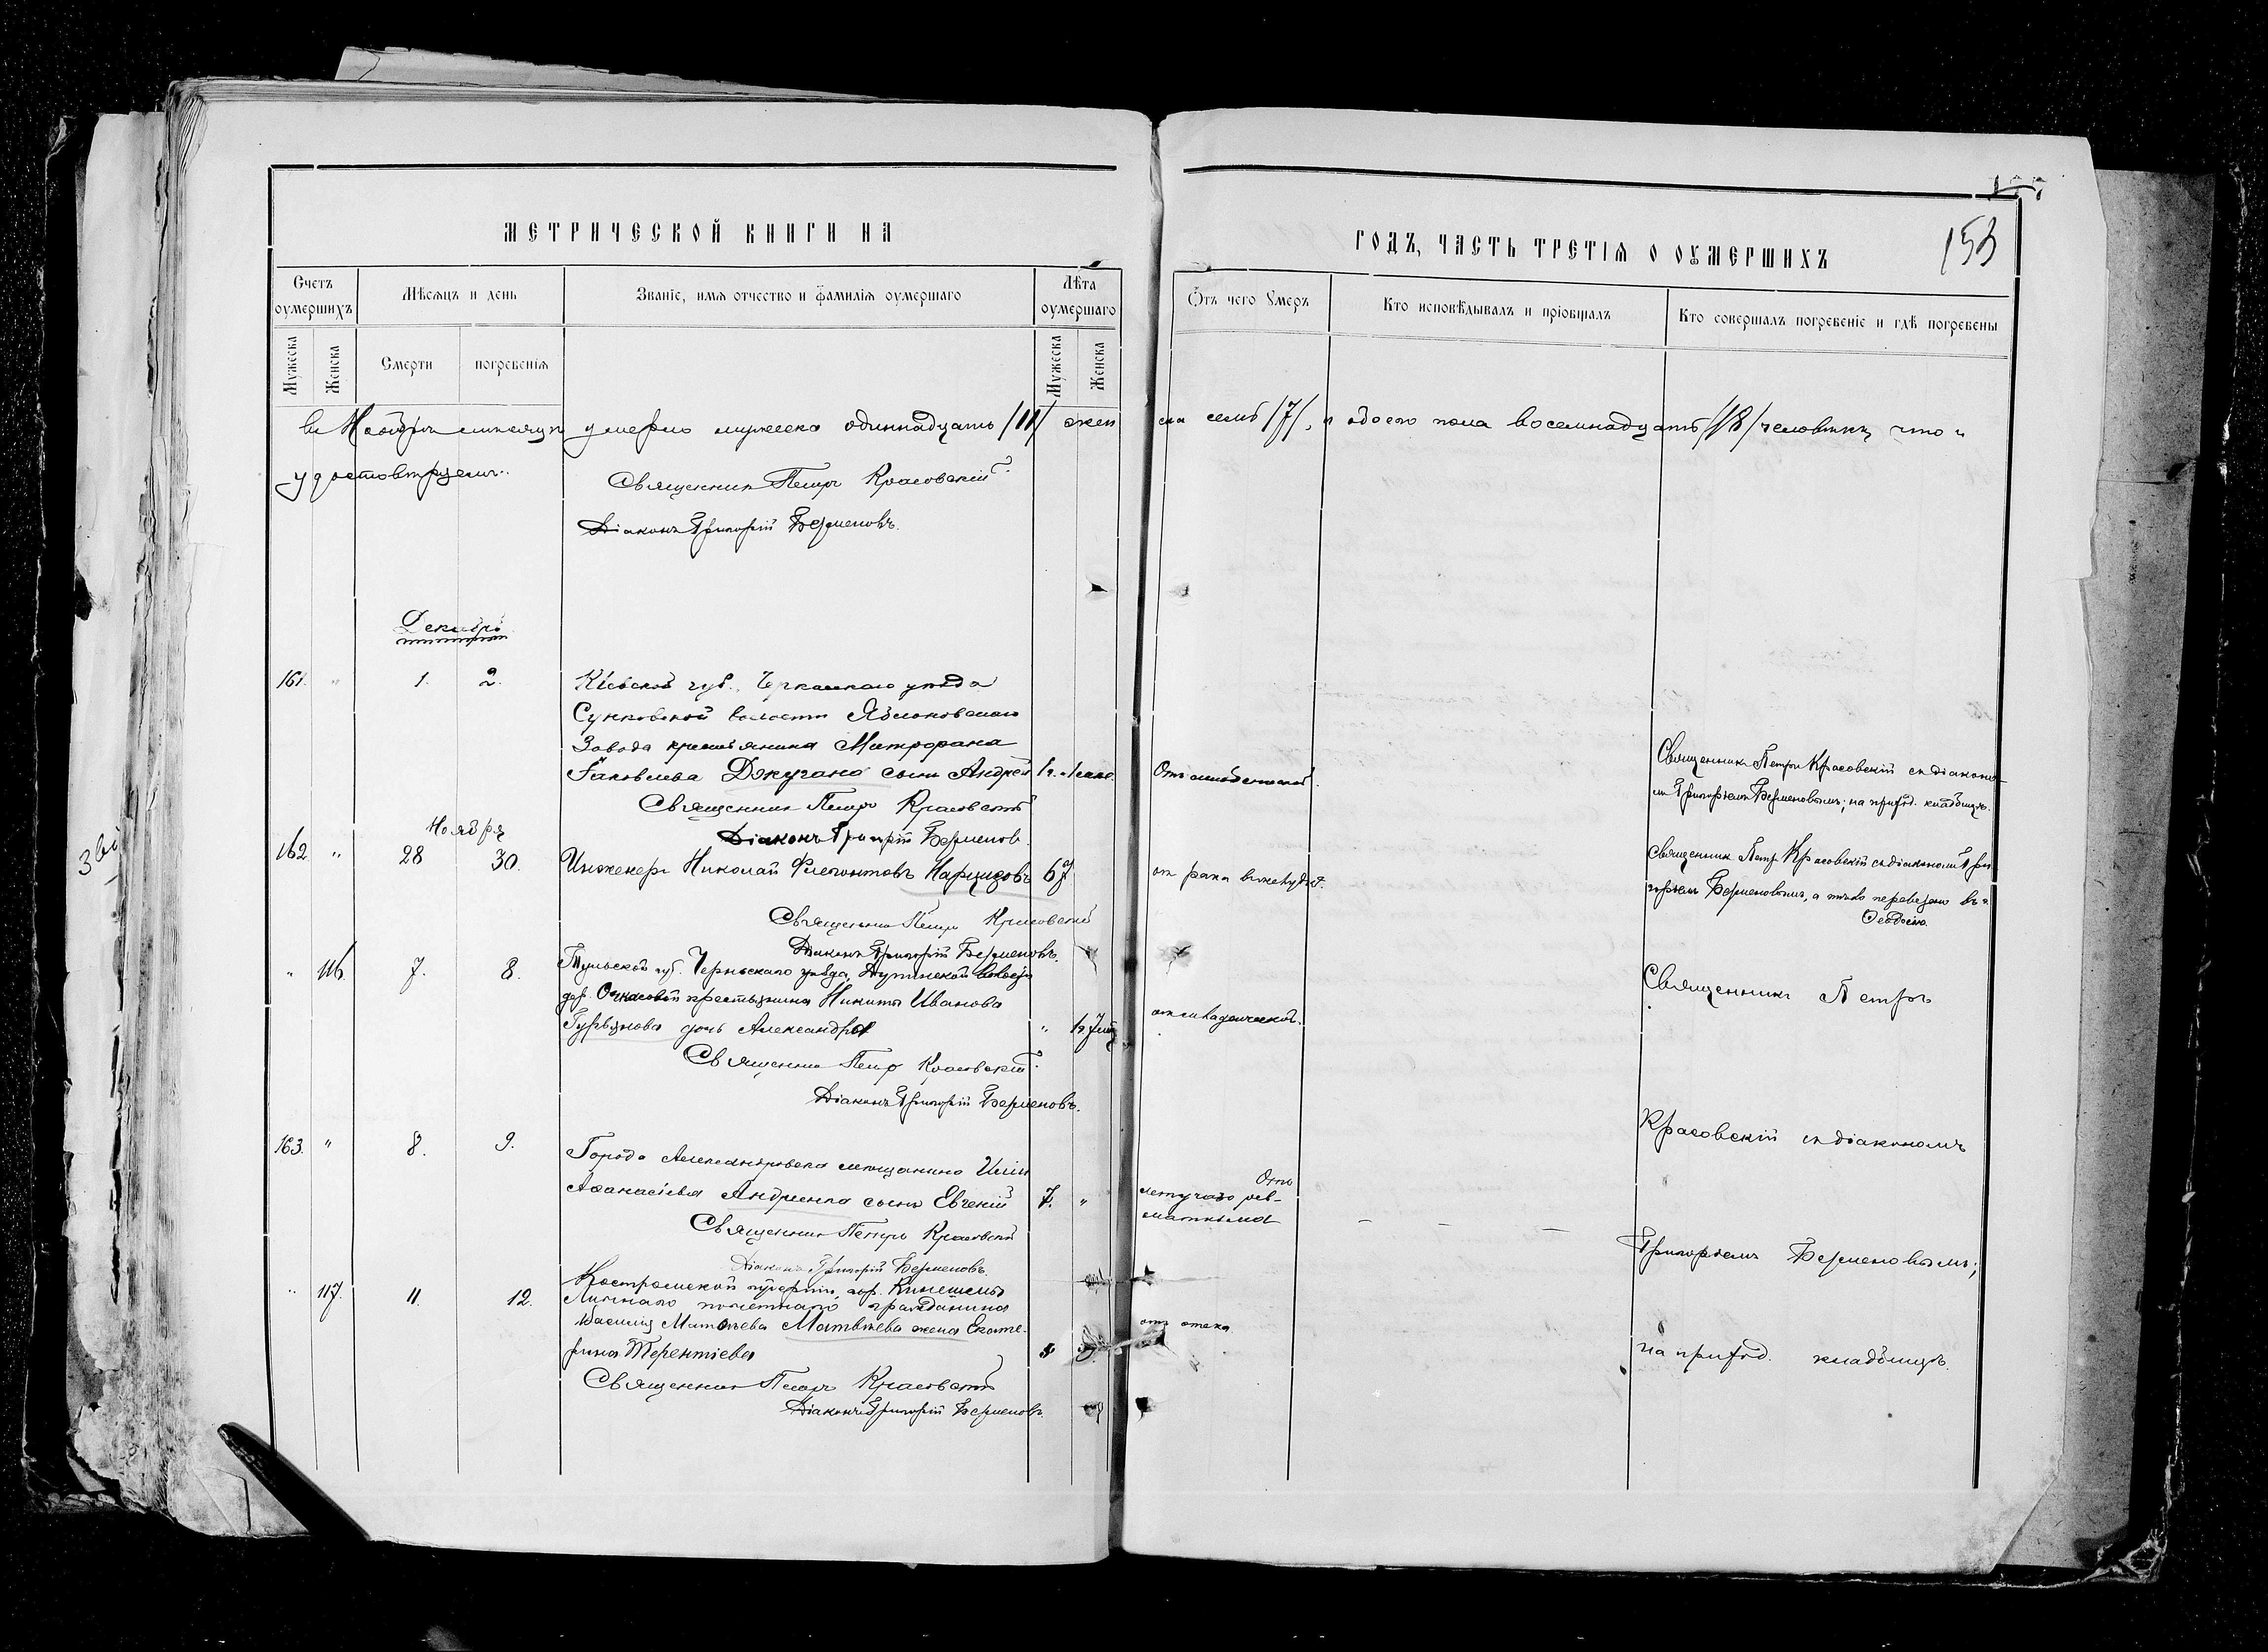 МЕТРИЧЕСКОЙ КНИГИ НА
ГОДЪ, ЧАСТЬ ТРЕТІѦ О ОУМЕРШИХЪ
153
Счетъ оумершихъ
Мѣсяцъ и день
Званіе, имѧ отчество и фамиліѧ оумершаго
Лѣта оумершаго
Ѿтъ чего Умеръ
Кто исповѣдывалъ и пріобщалъ
Кто совершалъ погребеніе и гдѣ погребены
Мужеска
Женска
Смерти
погребеніѧ
Мужеска
Женска
въ Ноябрѣ мѣсяцѣ умерло мужеска одиннадцать /11/ жен
ска семь /7/, а обоего пола восемнадцать /18/ человѣкъ, что и
удостовѣряемъ.
Священникъ Петръ Красовскій
Діаконъ Григорій Берменовъ.
Декабрь
161. " 1. 2. Кіевской губ., Черкасскаго уѣзда
Сунковской волости Яблоновскаго
Завода крестьянина Митрофана
Іаковлева Джугана сынъ Андрей 1 г.
Священникъ Петръ Красовскій
Діаконъ Григорій Берменовъ
Священникъ Петръ Красовскій съ діакономъ
Григоріемъ Берменовымъ; на приход. кладбищѣ.
Ноября
162 " 28 30. Инженеръ Николай Филеонтовъ Нарцизовъ 67
от рака въ желудкѣ.
Священникъ Петръ Красовскій
Діаконъ Григорій Берменовъ.
Священникъ Петръ Красовскій съ діакономъ Гри
горіемъ Берменовымъ, а тѣло перевезено въ г.
Ѳеодосію.
" 116. 7. 8. Тульской губ. Чернскаго уѣзда, волости
дер. крестьянина Никиты Иванова
Гурьянова дочь Александра " 1 г. 7 мѣс.
Священникъ Петръ Красовскій
Діаконъ Григорій Берменовъ.
Священникъ Петръ
163. " 8. 9. Города Александровска мѣщанина Иліи
Аѳанасіева Андриенка сынъ Евгеній 7. "
Отъ
летучаго рев-
матизма
Священникъ Петръ Красовскій
Діаконъ Григорій Берменовъ.
Красовскій съ діакономъ
Григоріемъ Берменовымъ;
" 117. 11. 12. Костромской губерніи, гор. Кинешмы
Личнаго почетнаго гражданина
Василія Матвѣева Матвѣева жена Екате-
рина Терентіева
отъ отека
Священникъ Петръ Красовскій
Діаконъ Григорій Берменовъ.
на приход. кладбищѣ.